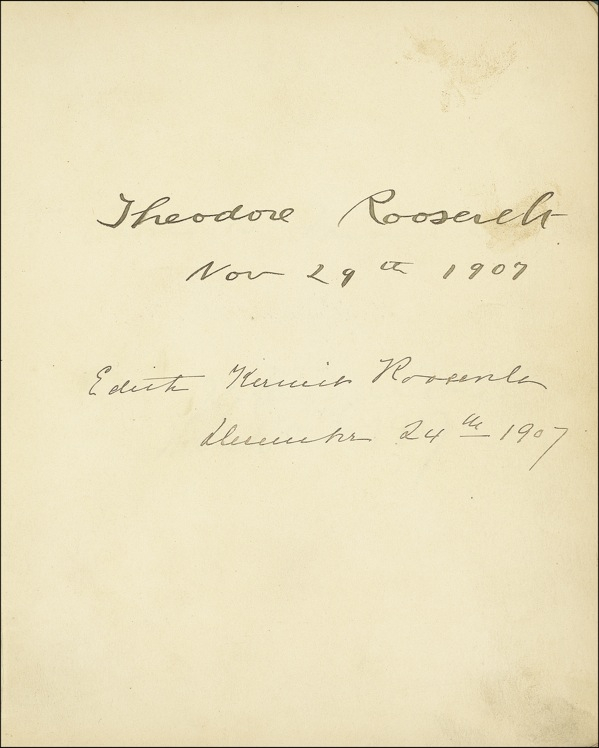 Theodore Roosevelt
Nov 29th 1907
Edith Kermit Roosevelt
December 24th 1907